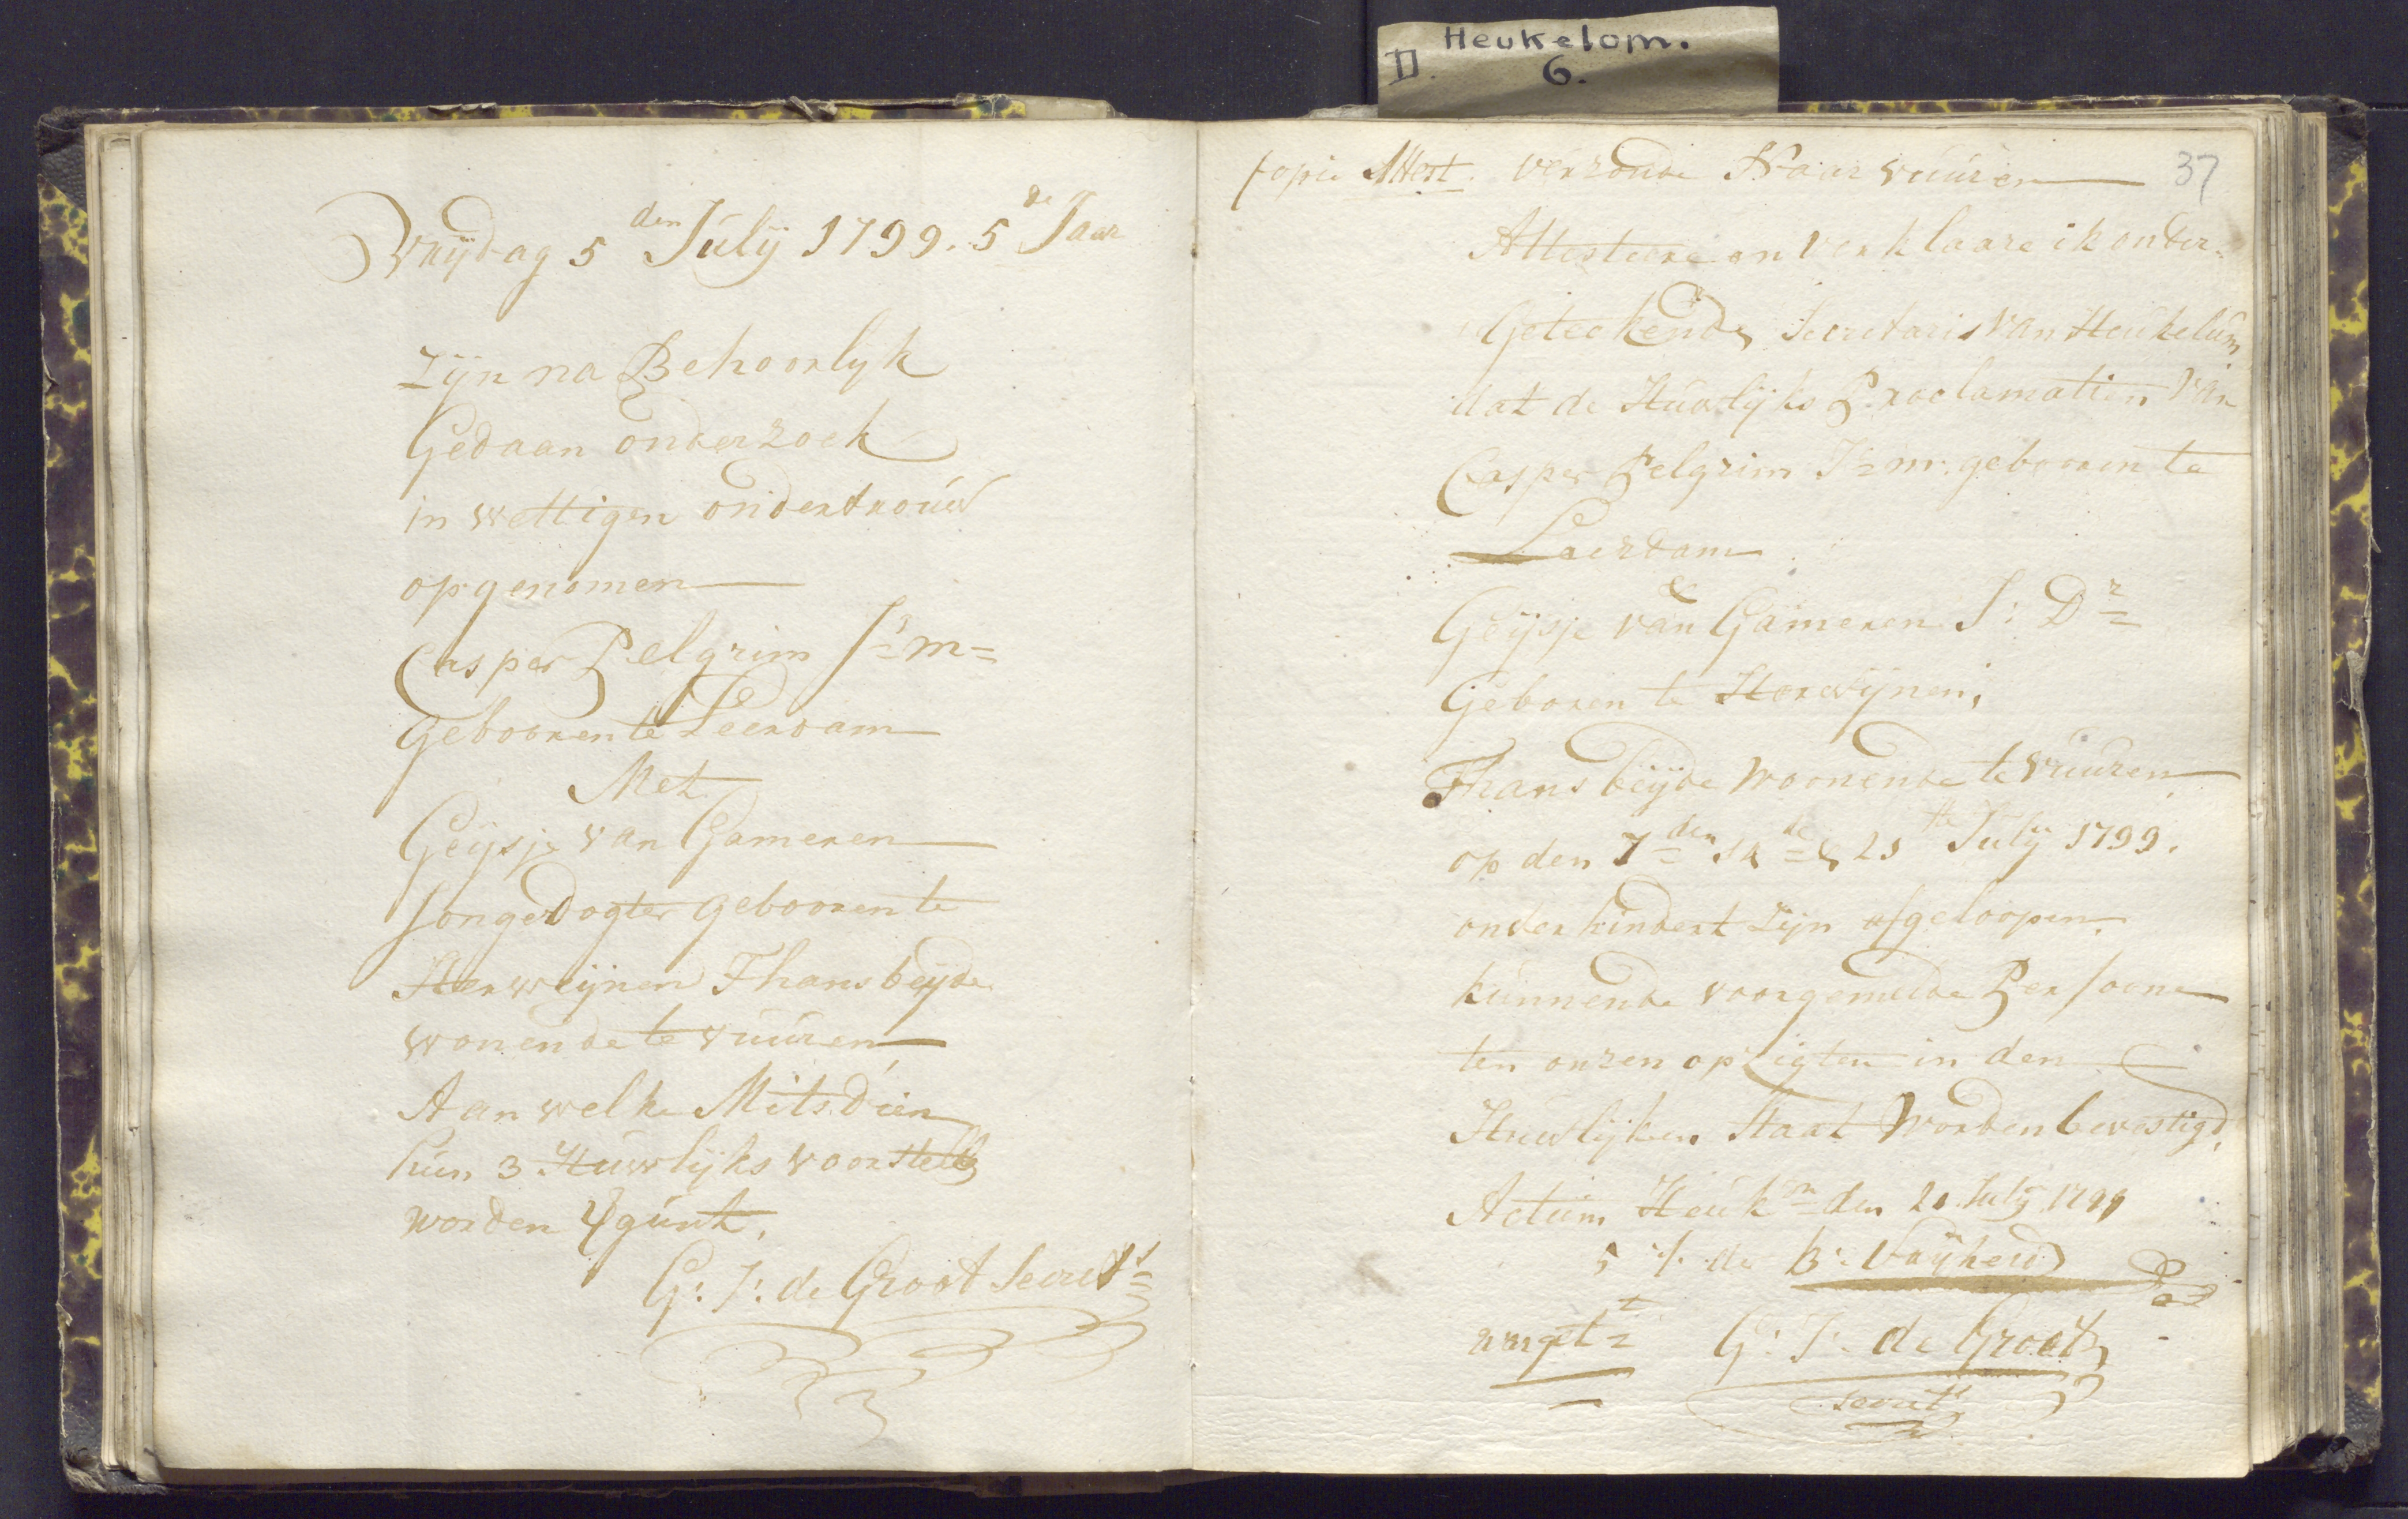 Heukelom.
II. 6.
Vrijdag 5 den Julij 1799. 5 de Jaar
zijn na Behoorlijk
Gedaan onderzoek
in wettigen ondertrouw
opgenomen
Casper Pelgrim J=m=
gebooren te Leerdam
Met
Geijsje van Gameren
Jongedogter gebooren te
Herweijnen Thans beijde
wonende te vuuren,
Aan welke Mitsdien
hun 3 Huwlijks voorstell
worden vgunt.
G: J: de Groot Secrets
37
Copie Attest. verzonde Naar vuuren
Attesteere en verklaare ik onder-
Geteekende Secretaris van Heukelum
dat de Huwlijks Proclamatien van
Casper Pelgrim J=m. gebooren te
Leerdam
&
Geijsje van Gameren J: Dr
Geboren te Herwijnen,
Thans beijde woonende te vuuren
op den 7den 14de & 21ste Julij 1799.
onderhindert zijn afgeloopen.
kunnende voorgemelde Persoone
ten onzen opzigten in den
Huwlijken Staat worden bevestigd,
Actum Heukm den 21 Julij 1799
5 J. der B: vrijheid
G: J: de Groot
secrets